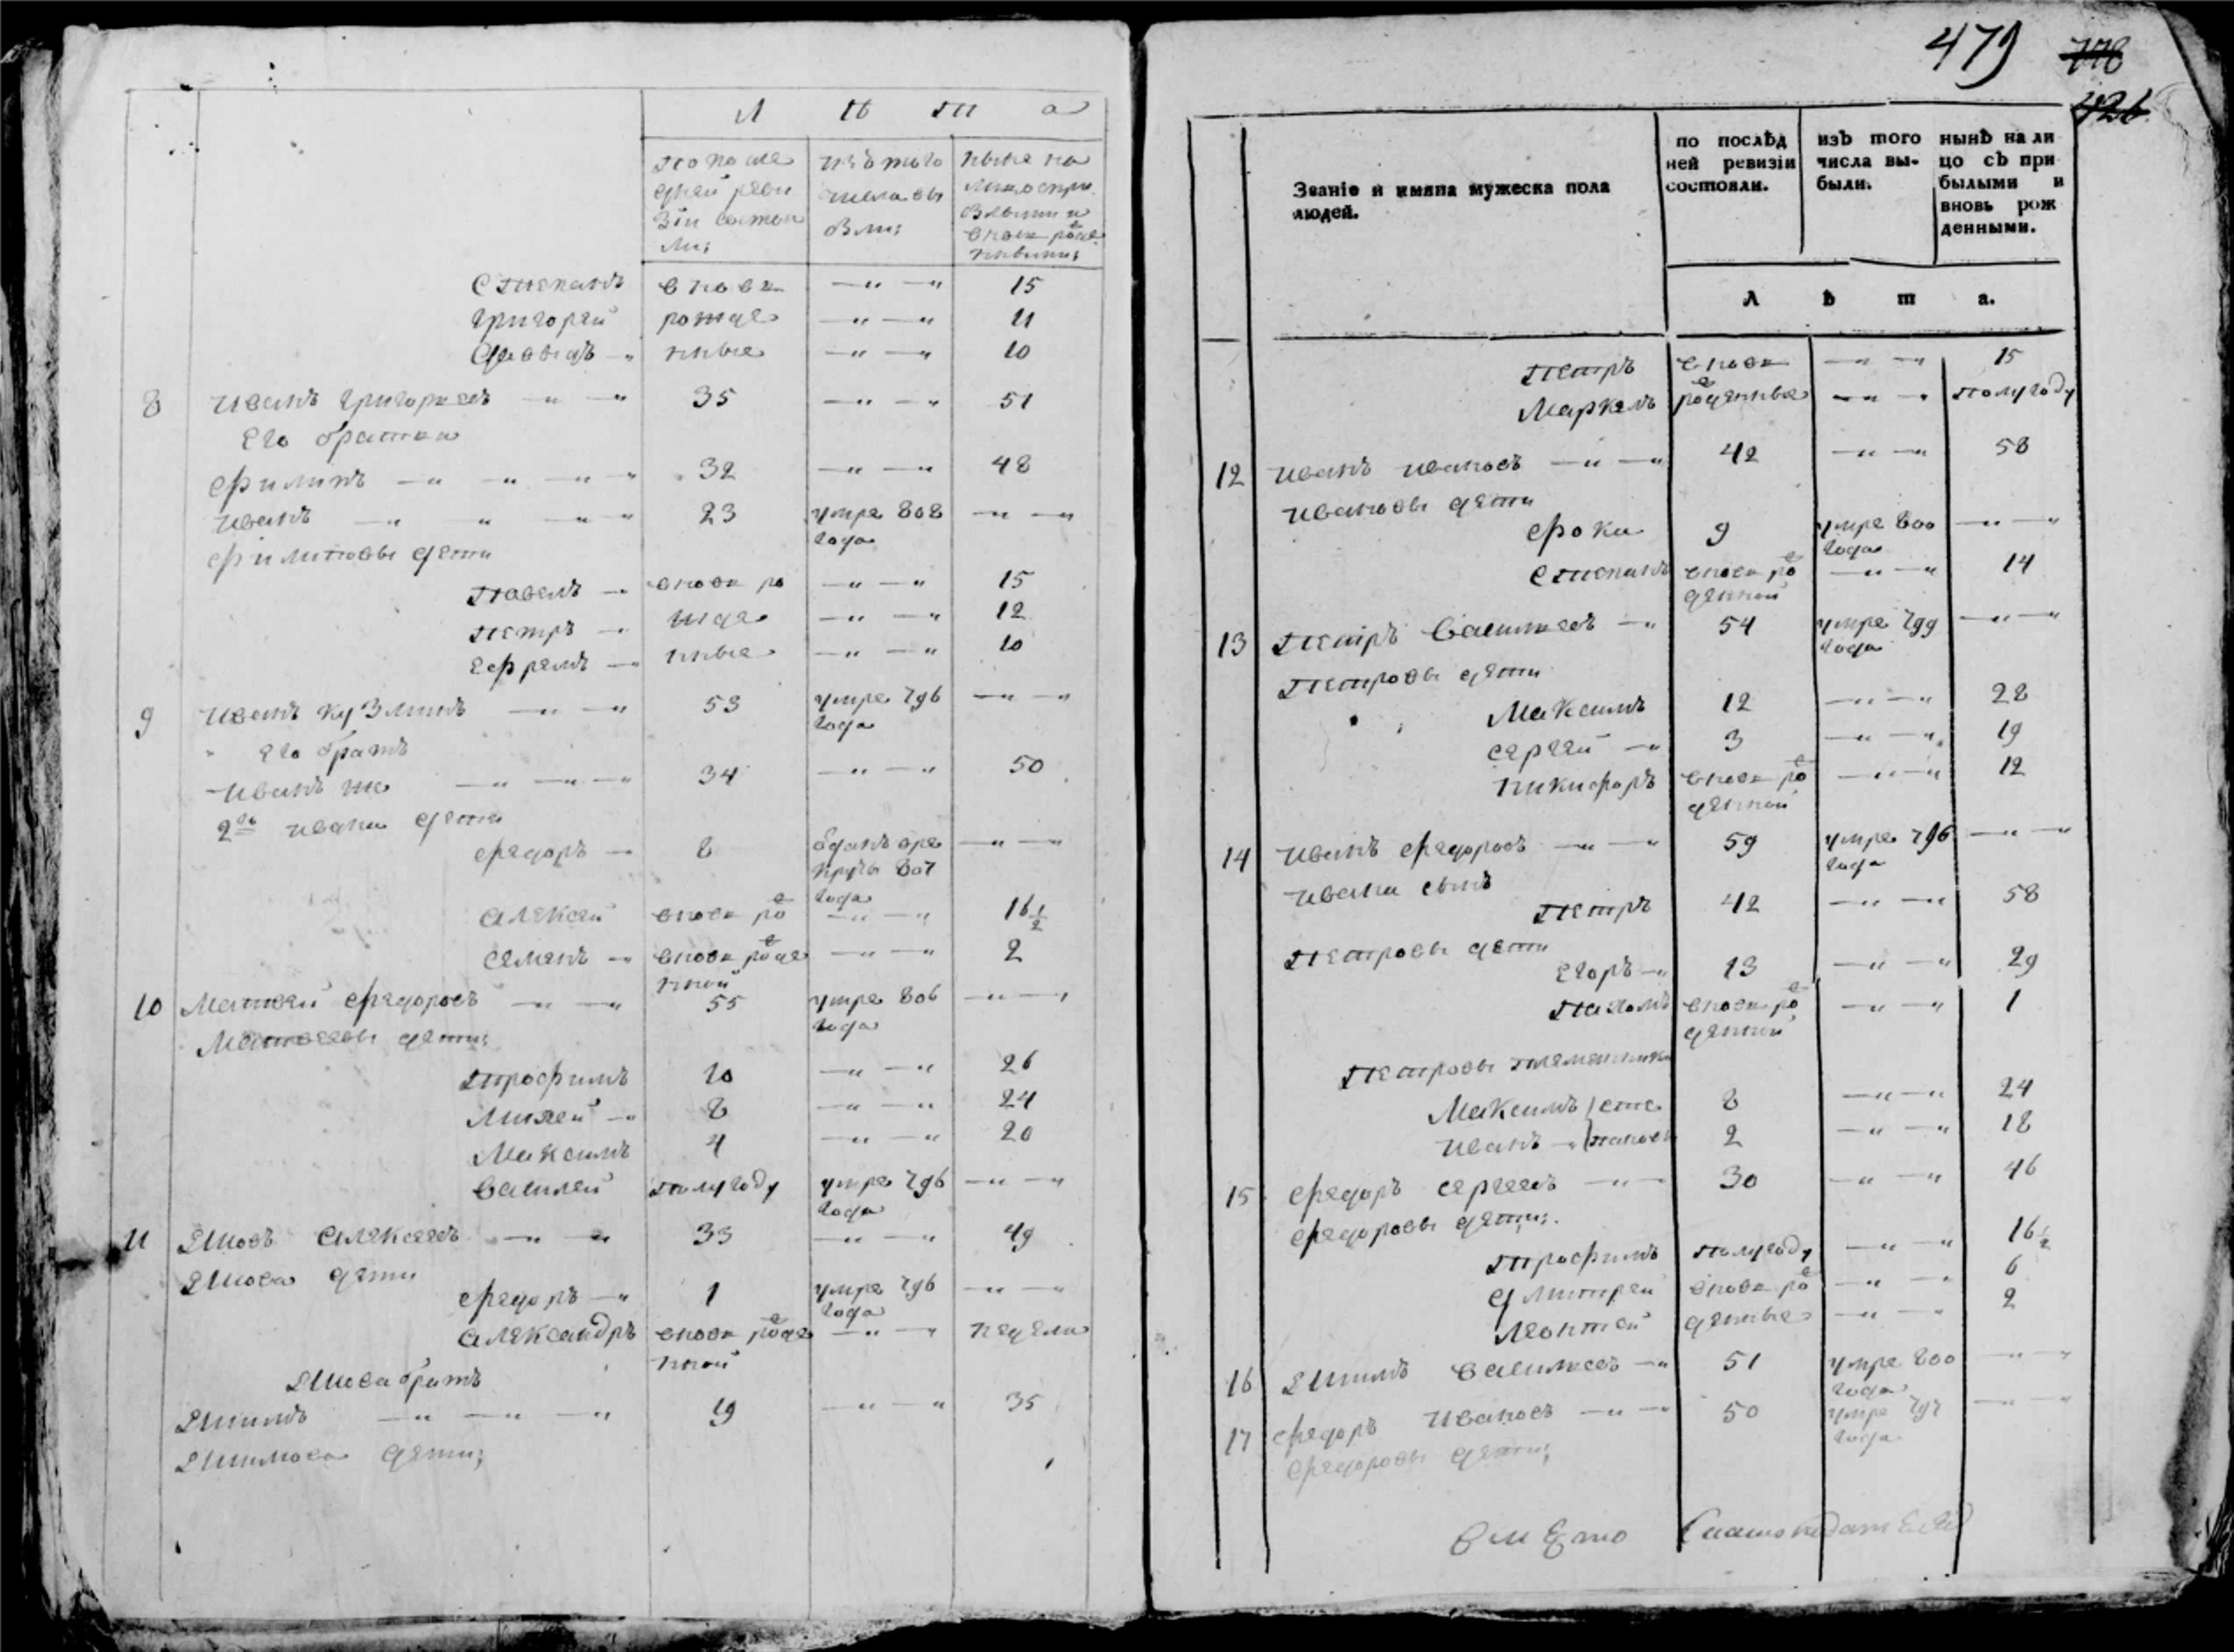 Л ѣ т а
по после
дней реви
зіи состоя
ли;
изъ того
числа вы
были;
ныне на
лицо спри
былыми и
вновь рожде
нными;
Степанъ вновь —„ —„ 15
Григорей рожде —„ —„ 11
нные —„ —„ 10
8 Иванъ Григорьевъ —„ —„ 35 —„ —„ 51
Его братья
Филипъ —„ —„ —„ 32 —„ —„ 48
Иванъ —„ —„ —„ 23 умре 808 —„ —„
года
Филиповы дети
Павелъ —„ вновь ро —„ —„ 15
Петръ —„ жде —„ —„ 12
Ефремъ —„ нные —„ —„ 10
9 Иванъ Кузминъ —„ —„ 53 умре 796 —„ —„
года
Его братъ
Иванъ же —„ —„ —„ 34 —„ —„ 50
2го Ивана дети
Федоръ —„ 8 зданъ вре —„ —„
круты 807
года
Алексей вновь ро —„ —„ 16½
Семенъ —„ вновь рожде —„ —„ 2
нной
10 Матвей Федоровъ —„ —„ 55 умре 806 —„ —„
года
Матвеевы дети;
Трофимъ 10 —„ —„ 26
Михей —„ 8 —„ —„ 24
Максимъ 4 —„ —„ 20
Василей полугоду умре 796 —„ —„
года
11 Алексеевъ —„ —„ 33 —„ —„ 49
дети
Федоръ —„ 1 умре 796 —„ —„
года
Александръ вновь рожде —„ —„ недели
нной
братъ
—„ —„ —„ 19 —„ —„ 35
дети;
479
778
426
Званіе и имяна мужеска пола
людей.
по послѣд
ней ревизіи
состояли.
изъ того
числа вы-
были.
нынѣ на ли
цо съ при
былыми и
вновь рож
денными.
Л ѣ т а.
Петръ вновь —„ —„ 15
Маркелъ рожденные —„ —„ полугоду
12 Иванъ Ивановъ —„ —„ 42 —„ —„ 58
Ивановы дети
Фока 9 умре 800 —„ —„
года
Степанъ вновь ро —„ —„ 14
жденной
13 Петръ Васильевъ —„ 54 умре 799 —„ —„
года
Петровы дети
Максимъ 12 —„ —„ 28
Сергей —„ 3 —„ —„ 19
Никифоръ вновь ро —„ —„ 12
жденной
14 Иванъ Федоровъ —„ —„ 59 умре 796 —„ —„
года
Ивана сынъ
Петръ 42 —„ —„ 58
Петровы дети
Егоръ —„ 13 —„ —„ 29
Пахомъ вновь ро —„ —„ 1
жденной
Петровы племянники
Максимъ сте 8 —„ —„ 24
Иванъ —„ пановы 2 —„ —„ 18
15 Федоръ Сергеевъ —„ — 30 —„ —„ 46
Федоровы дети;
Трофимъ полугоду —„ —„ 16½
Дмитрей вновь ро —„ —„ 6
Леонтей жденные —„ —„ 2
16 Васильевъ —„ 51 умре 800 —„ —„
года
17 Федоръ Ивановъ —„ —„ 50 умре 797 —„ —„
года
Федоровы дети;
вместо